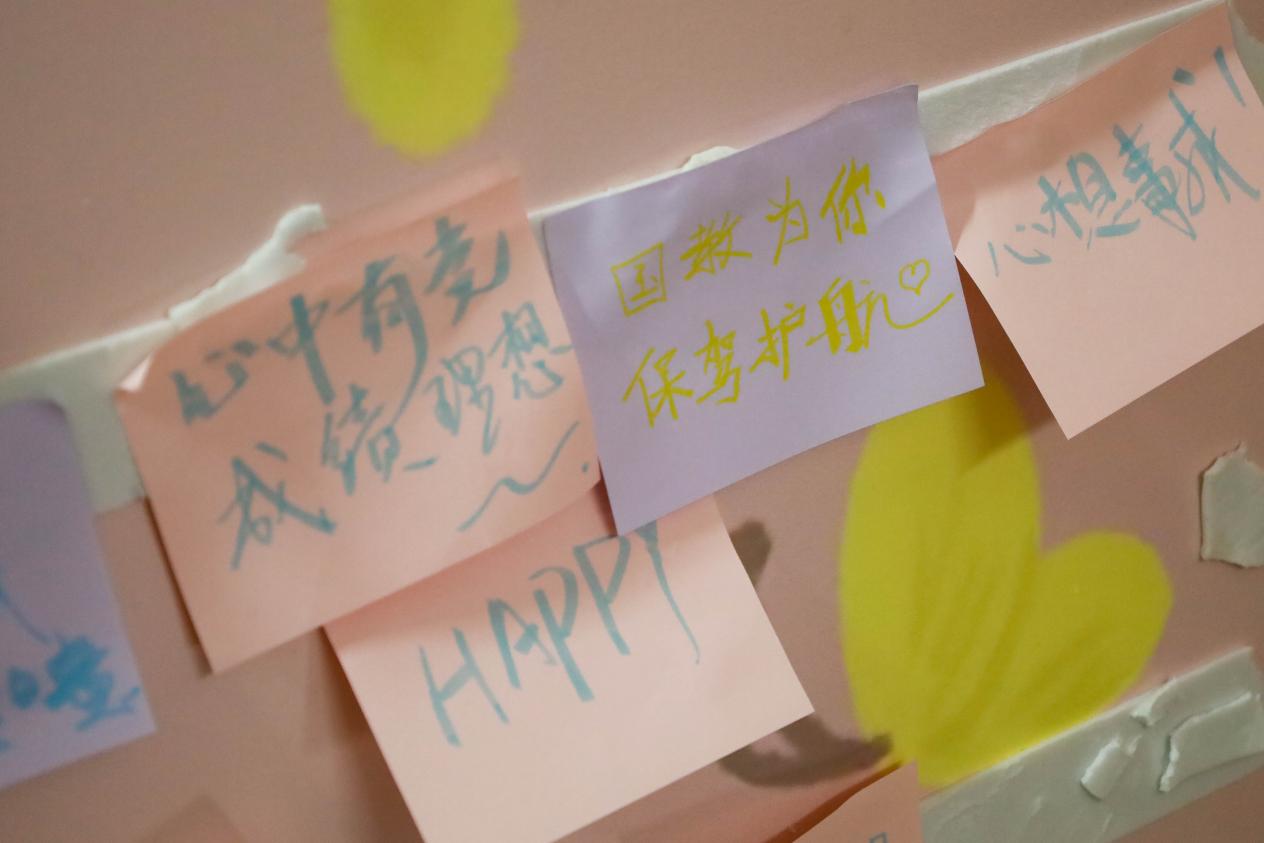 心中有光
成绩理想
~.
国教为你
保驾护航♡
心想事成!
HAPPY